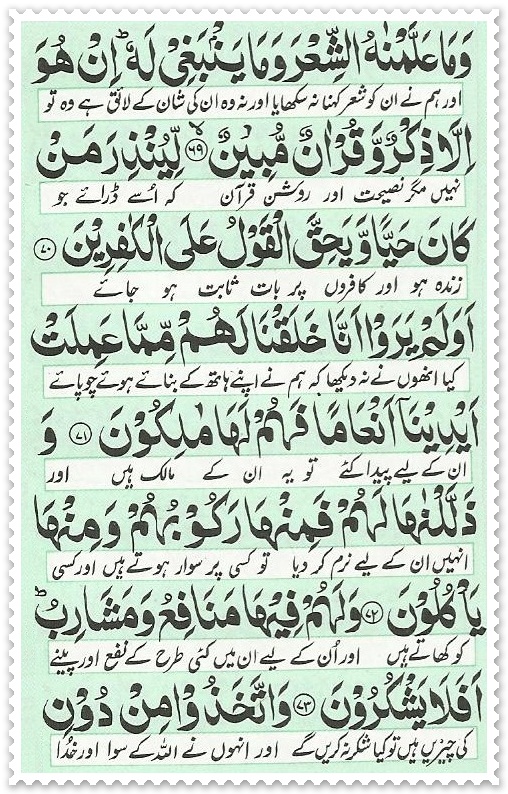 وَمَا عَلَّمْنٰهُ الشِّعْرَ وَمَا يَنْۢبَغِيْ لَهٗ ؕ اِنْ هُوَ
اور ہم نے ان کو شعر کہنا نہ سکھایا اور نہ وہ ان کی شان کے لائق ہے وہ تو
اِلَّا ذِكْرٌ وَّ قُرْاٰنٌ مُّبِيْنٌ ۙ﴿۶۹﴾ لِّيُنْذِرَ مَنْ
نہیں مگر نصیحت اور روشن قرآن کہ اُسے ڈرائے جو
كَانَ حَيًّا وَّ يَحِقَّ الْقَوْلُ عَلَى الْكٰفِرِيْنَ ﴿۷۰﴾
زندہ ہو اور کافروں پر بات ثابت ہو جائے
اَوَلَمْ يَرَوْا اَنَّا خَلَقْنَا لَهُمْ مِّمَّا عَمِلَتْ
کیا انھوں نے نہ دیکھا کہ ہم نے اپنے ہاتھ کے بنائے ہوئے چوپائے
اَيْدِيْنَاۤ اَنْعَامًا فَهُمْ لَهَا مٰلِكُوْنَ ﴿۷۱﴾ وَ
ان کے لیے پیدا کئے تو یہ ان کے مالک ہیں اور
ذَلَّلْنٰهَا لَهُمْ فَمِنْهَا رَكُوْبُهُمْ وَمِنْهَا
انہیں ان کے لیے نرم کر دیا تو کسی پر سوار ہوتے ہیں اور کسی
يَاْكُلُوْنَ ﴿۷۲﴾ وَلَهُمْ فِيْهَا مَنَافِعُ وَمَشَارِبُ ؕ
کو کھاتے ہیں اور اُن کے لیے ان میں کئی طرح کے نفع اور پینے
اَفَلَا يَشْكُرُوْنَ ﴿۷۳﴾ وَاتَّخَذُوْا مِنْ دُوْنِ
کی چیزیں ہیں تو کیا شکر نہ کریں گے اور انہوں نے اللہ کے سوا اور خدا